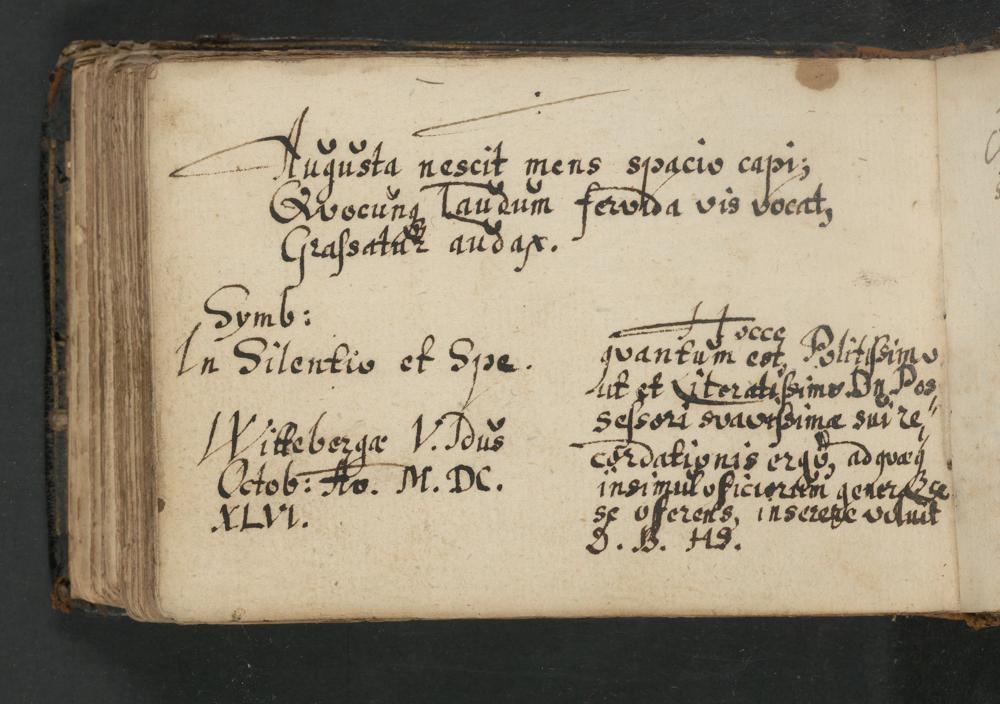 Augusta nescit mens spacio capi;
Qvocunq Laudum fervida vis vocat,
Grassatur audax.
Symb:
In Silentio et Spe.
Wittebergæ V. Idus
Octob: Ao. M. DC.
XLVI.
Hocce
quantum est, Politissimo
ut et Literatissimo Dn. Pos-
sessori svavissimæ sui re-
cordationis ergô, ad quæq
insimul officiorum genera
se offerens, inserere voluit